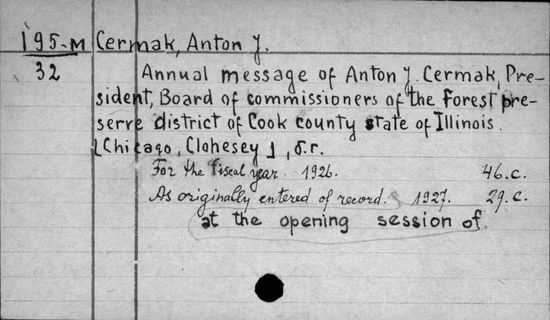 195-M Cermak, Anton J.
32 Annual message of Anton J. Cermak, Pre-
sident, Board of commissioners of the Forest pre-
serve district of Cook county state of Illinois.
[Chicago, Clohesey], d.r.
For the fiscal year 1926. 46.c.
As originally entered of record. 1927. 29.c.
at the opening session of